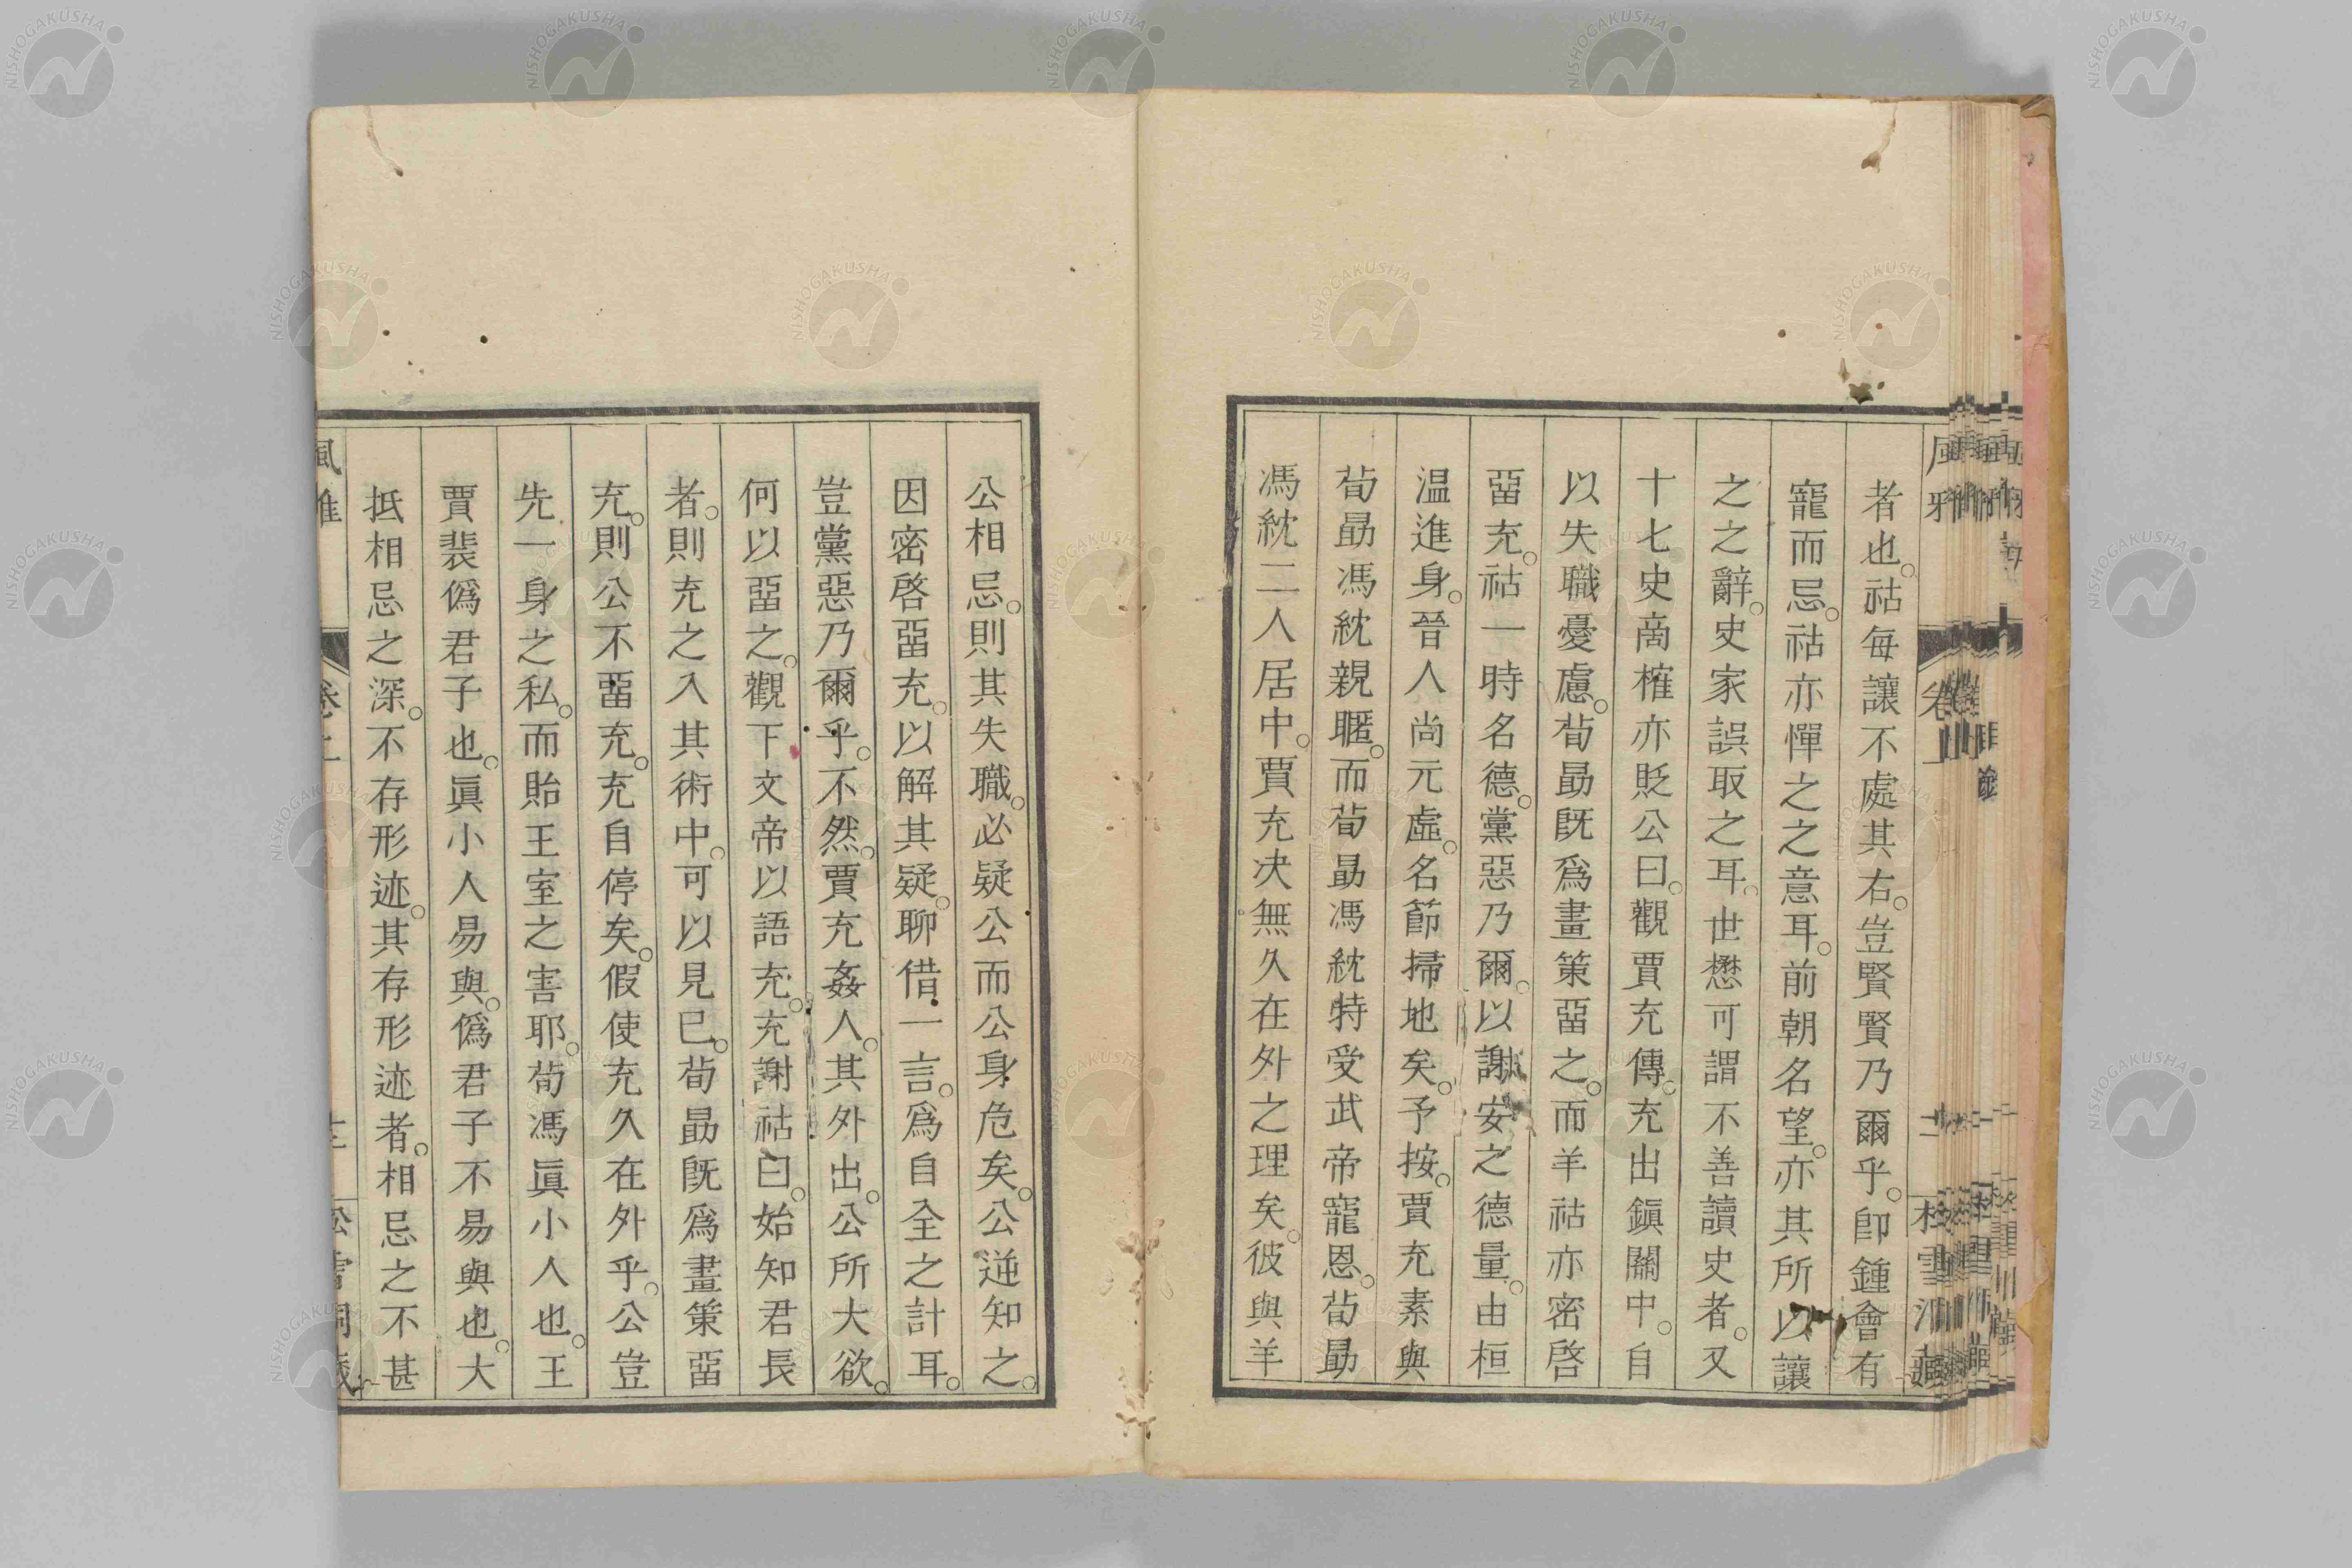 者也。祜每讓不處其右。豈賢賢乃爾乎。卽鍾會有
寵而忌。祜亦憚之之意耳。前朝名望。亦其所以讓
之之辭。史家誤取之耳。世懋可謂不善讀史者。又
十七史商榷亦貶公曰。觀賈充傳。充出鎭關中。自
以失職憂慮。荀勗旣爲畫策畱之。而羊祜亦密啓
畱充。祜一時名德。黨惡乃爾。以謝安之德量。由桓
温進身。晉人尚元虛。名節掃地矣。予按。賈充素與
荀勗馮紞親暱。而荀勗馮紞特受武帝寵恩。荀勗
馮紞二人居中。賈充决無久在外之理矣。彼與羊
公相忌。則其失職。必疑公而公身危矣。公逆知之。
因密啓畱充。以解其疑。聊借一言。爲自全之計耳。
豈黨惡乃爾乎。不然。賈充姦人。其外出。公所大欲。
何以畱之。觀下文帝以語充。充謝祜曰。始知君長
者。則充之入其術中。可以見已。荀勗旣爲畫策畱
充。則公不畱充。充自停矣。假使充久在外乎。公豈
先一身之私。而貽王室之害耶。荀馮眞小人也。王
賈裴僞君子也。眞小人易與。僞君子不易與也。大
抵相忌之深。不存形迹。其存形迹者。相忌之不甚
NISHOGAKUSHA